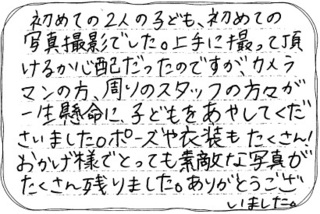 初めての2人の子ども、初めての
写真撮影でした。上手に撮って頂
けるか心配だったのですが、カメラ
マンの方、周りのスタッフの方々が
一生懸命に、子どもをあやしてくだ
さいました。ポーズや衣装もたくさん!
おかげ様でとっても素敵な写真が
たくさん残りました。ありがとうござ
いました。